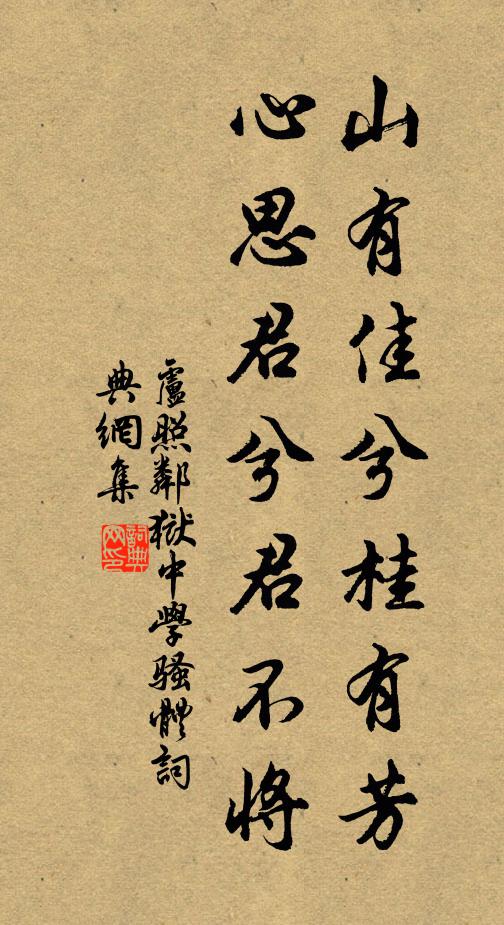 山有佳兮桂有芳
心思君兮君不將
盧照鄰獄中學騷體詞
典網集
詞典網印